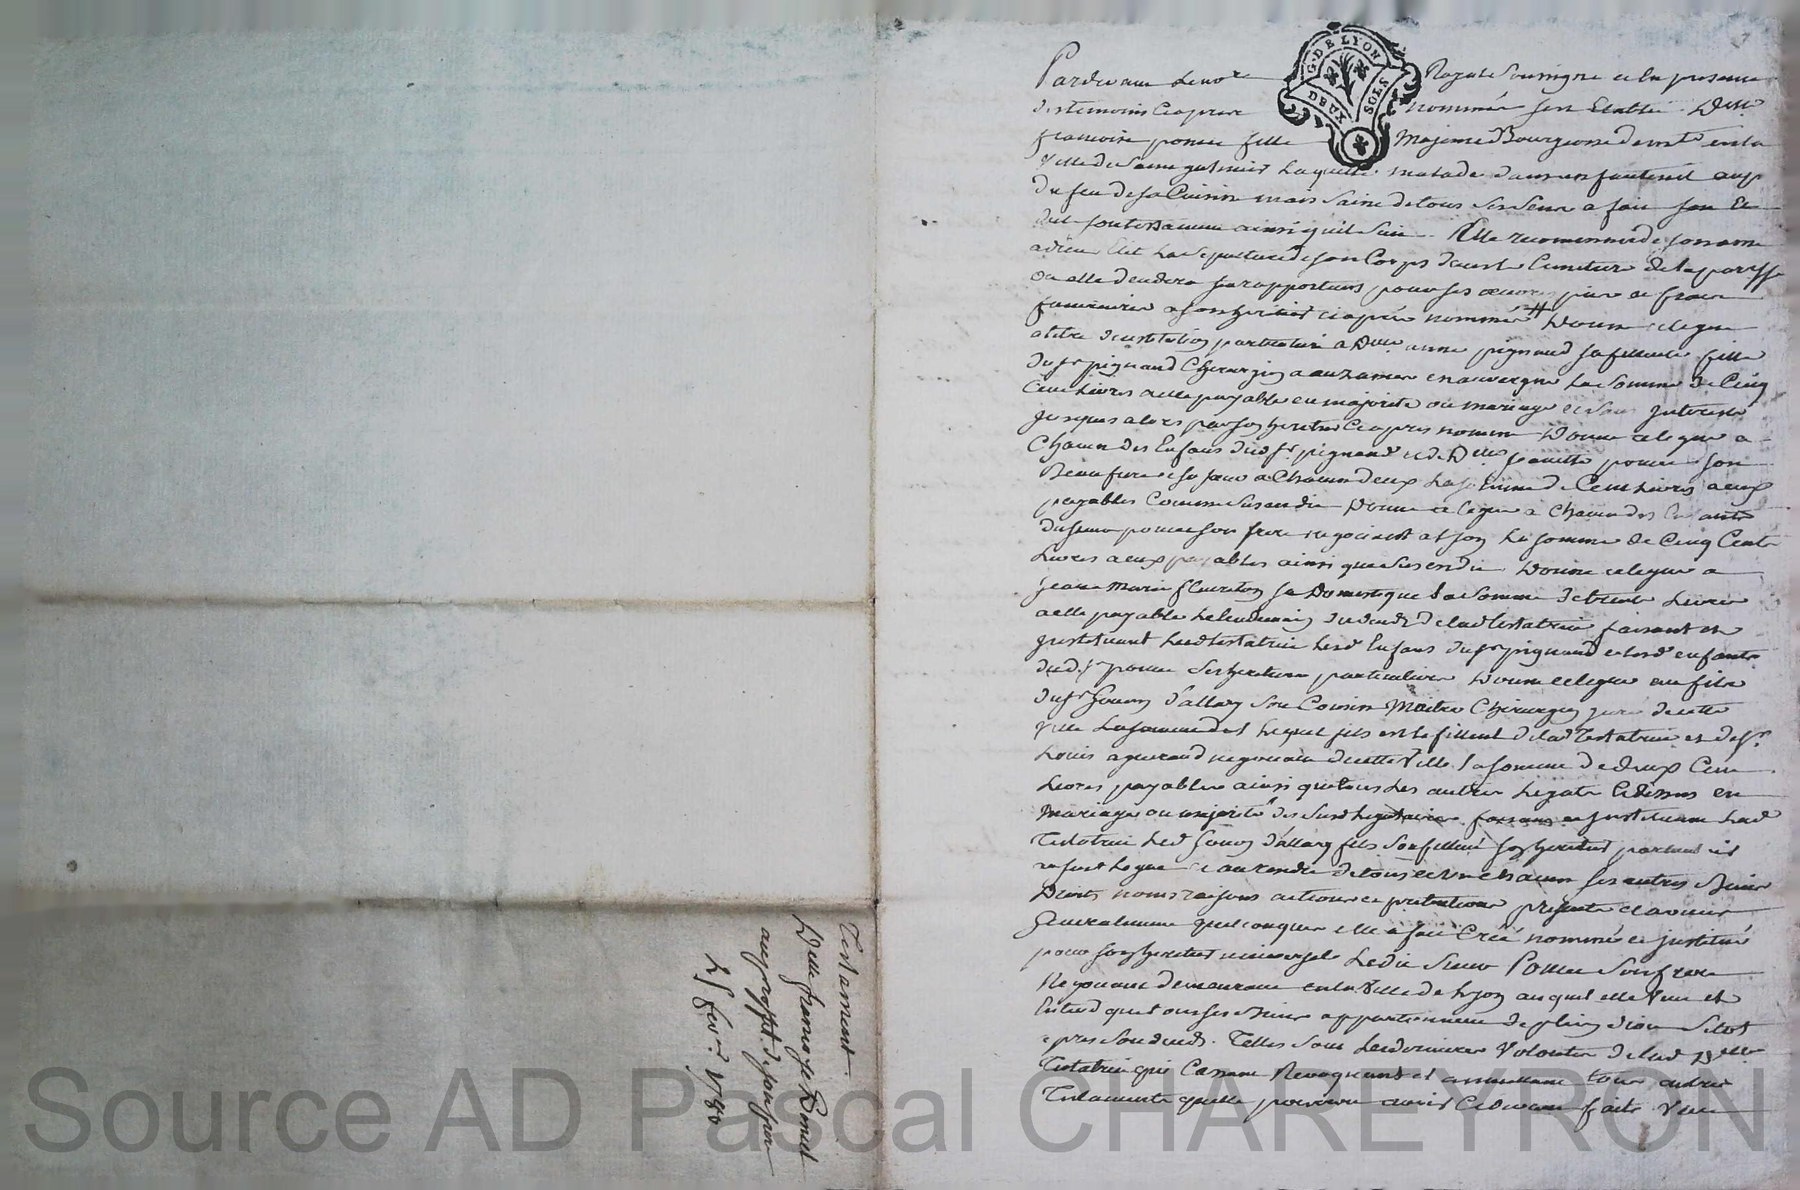 Testament
Delle francoise Poncet
au proffit de son frere
25 fevr. 1780
G. DE LYON
DEUX SOLS
Pardevant Le no.re Royal Soussigné et En presence
des temoins Cy apres nommés fut Etablie Dlle
francoise poncet fille Majeure Bourgeoise demte en la
Ville de Saint galmier Laquelle malade dans un fauteuil aup
du feu de sa Cuisine mais Saine de tous ses Sens a fait son
testament ainsi qu'il Suit. Elle recommande son ame
a dieu Elit La Sepulture de son Corps dans le Cimetiere de la paroisse
ou elle decedera s'en rapportant pour ses œuvres pies et fraix
funeraires a son heritier ci apres nommé # Donne et legue
a titre d'institution particuliere a Dlle anne pignaud sa filleule fille
du Sr pignaud Chirurgien a auzances en auvergne La Somme de Cinq
Cent Livres a elle payable en majorité ou mariage et Sans Interest
jusques alors par son heritier Ci apres nommé Donne et legue a
Chacun des Enfans dud Sr pignaud et de Dlle poncet son
Beaufrere et sa sœur a Chacun d'eux La Somme de Cent Livres a eux
payables Comme Susendit Donne et legue a Chacun des Enfants
du Sieur poncet son frere negociant a Lyon La Somme de Cinq Cents
Livres a eux payables ainsi que Susendit Donne et legue a
Jeanne Marie fleureton Sa Domestique La Somme de trente Livres
a elle payable Le lendemain du deces de lad testatrice faisant et
instituant Lad testatrice lesd Enfans du Sr pignaud et lesd enfants
dud Sr poncet Ses heritiers particuliers Donne et legue au fils
du Sr d'allary Son Cousin Maitre Chirurgien juré de cette
Ville Lequel fils est le filleul de lad Testatrice et de Sr
Louis negociant de cette Ville La Somme de deux Cent
Livres payables ainsi que tous les autres Legats Cidessus en
Mariage ou majorité des Susd Legataires faisant et instituant Lad
Testatrice Led d'allary fils Son filleul Son heritier particulier
Et au reste de tous et un chacun ses autres Biens
Droits noms raisons actions et pretentions presents et avenir
generalement quelconques elle a fait Créé nommé et institué
pour son heritier universel Ledit Sieur Poncet Son frere
Negociant demeurant en la Ville de Lyon auquel elle veut et
Entend que tous ses Biens appartiennent de plein droit Sitot
apres Son deces. Telles Sont Les dernieres Volontés de lad Dlle
Testatrice qui Casse Revoquant et annullant tous autres
Testaments quelle pourroit avoir Cidevant faits Veut
Source AD Pascal CHAREYRON